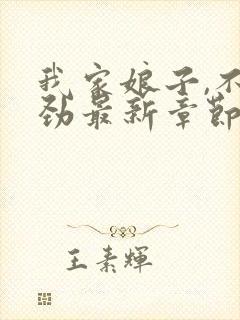 我家娘子,不
劲最新章节
王素辉